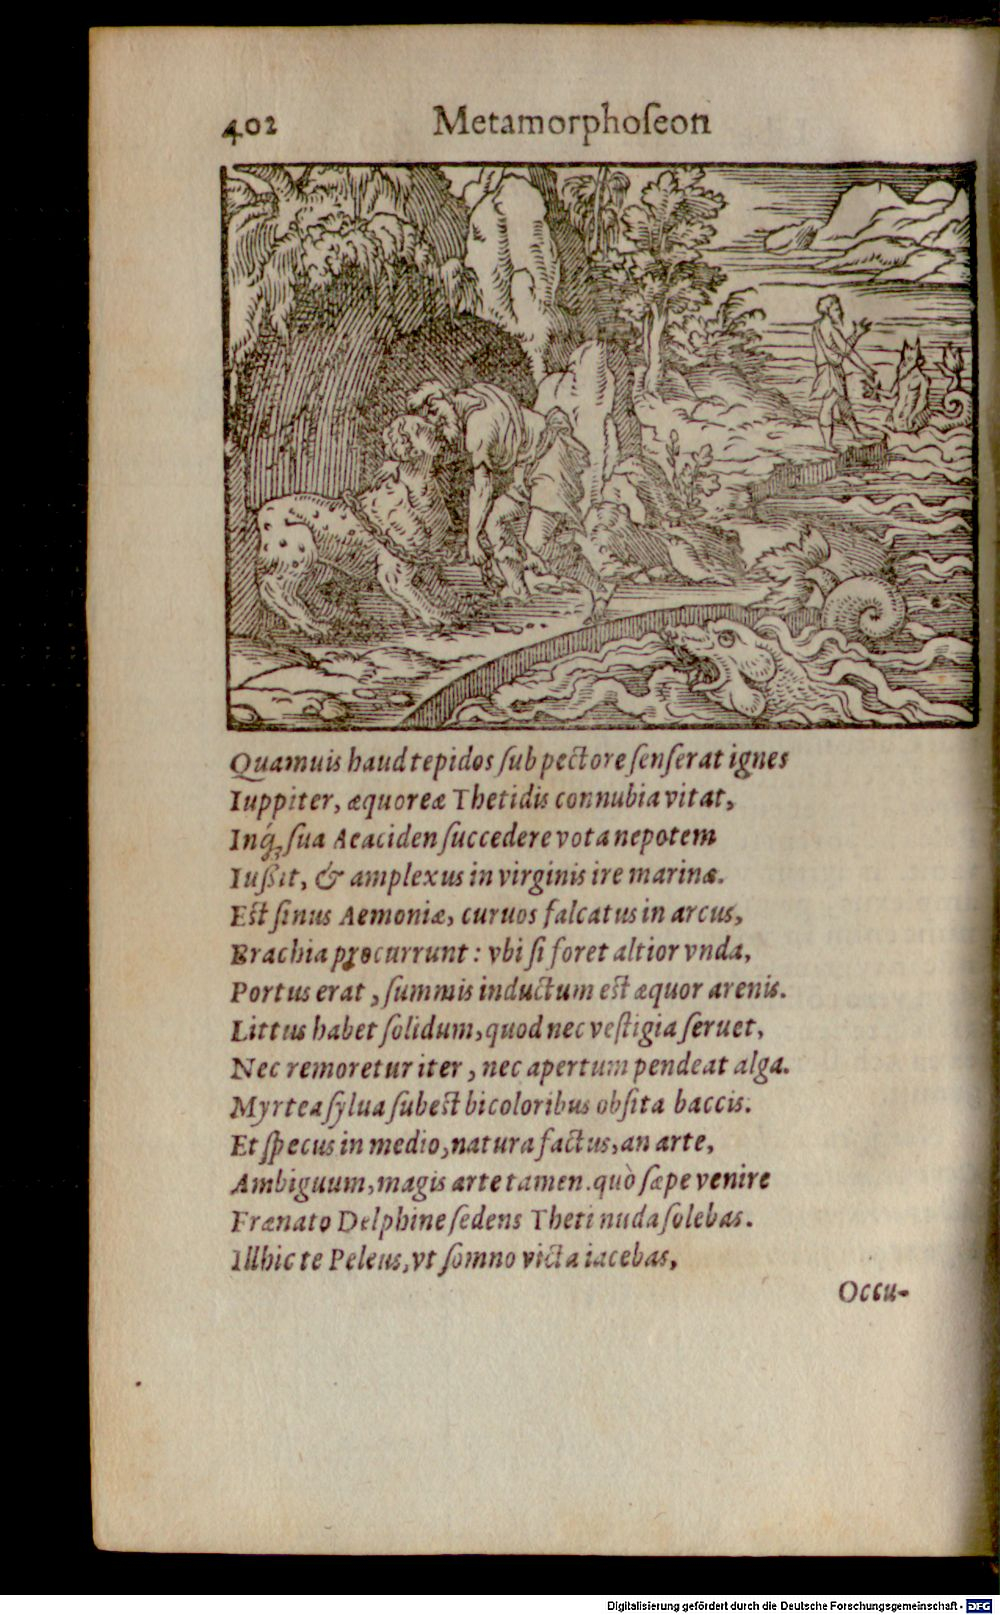 402 Metamorphoſeon
Quamuis haud tepidos ſub pectore ſenſerat ignes
Iuppiter, æquoreæ Thetidis connubia vitat,
Inq́; ſua Aeaciden ſuccedere vota nepotem
Iußit, & amplexus in virginis ire marinæ.
Est ſinus Aemoniæ, curuos falcatus in arcus,
Brachia procurrunt: vbi ſi foret altior vnda,
Portus erat, ſummis inductum est æquor arenis.
Littus habet ſolidum, quod nec veſtigia ſeruet,
Nec remoretur iter, nec apertum pendeat alga.
Myrtea ſylua ſubest bicoloribus obſita baccis.
Et ſpecus in medio, natura factus, an arte,
Ambiguum, magis arte tamen. quò ſæpe venire
Frænato Delphine ſedens Theti nuda ſolebas.
Illhic te Peleus, vt ſomno victa iacebas,
Occu-
Digitalisierung gefördert durch die Deutsche Forschungsgemeinschaft - DFG